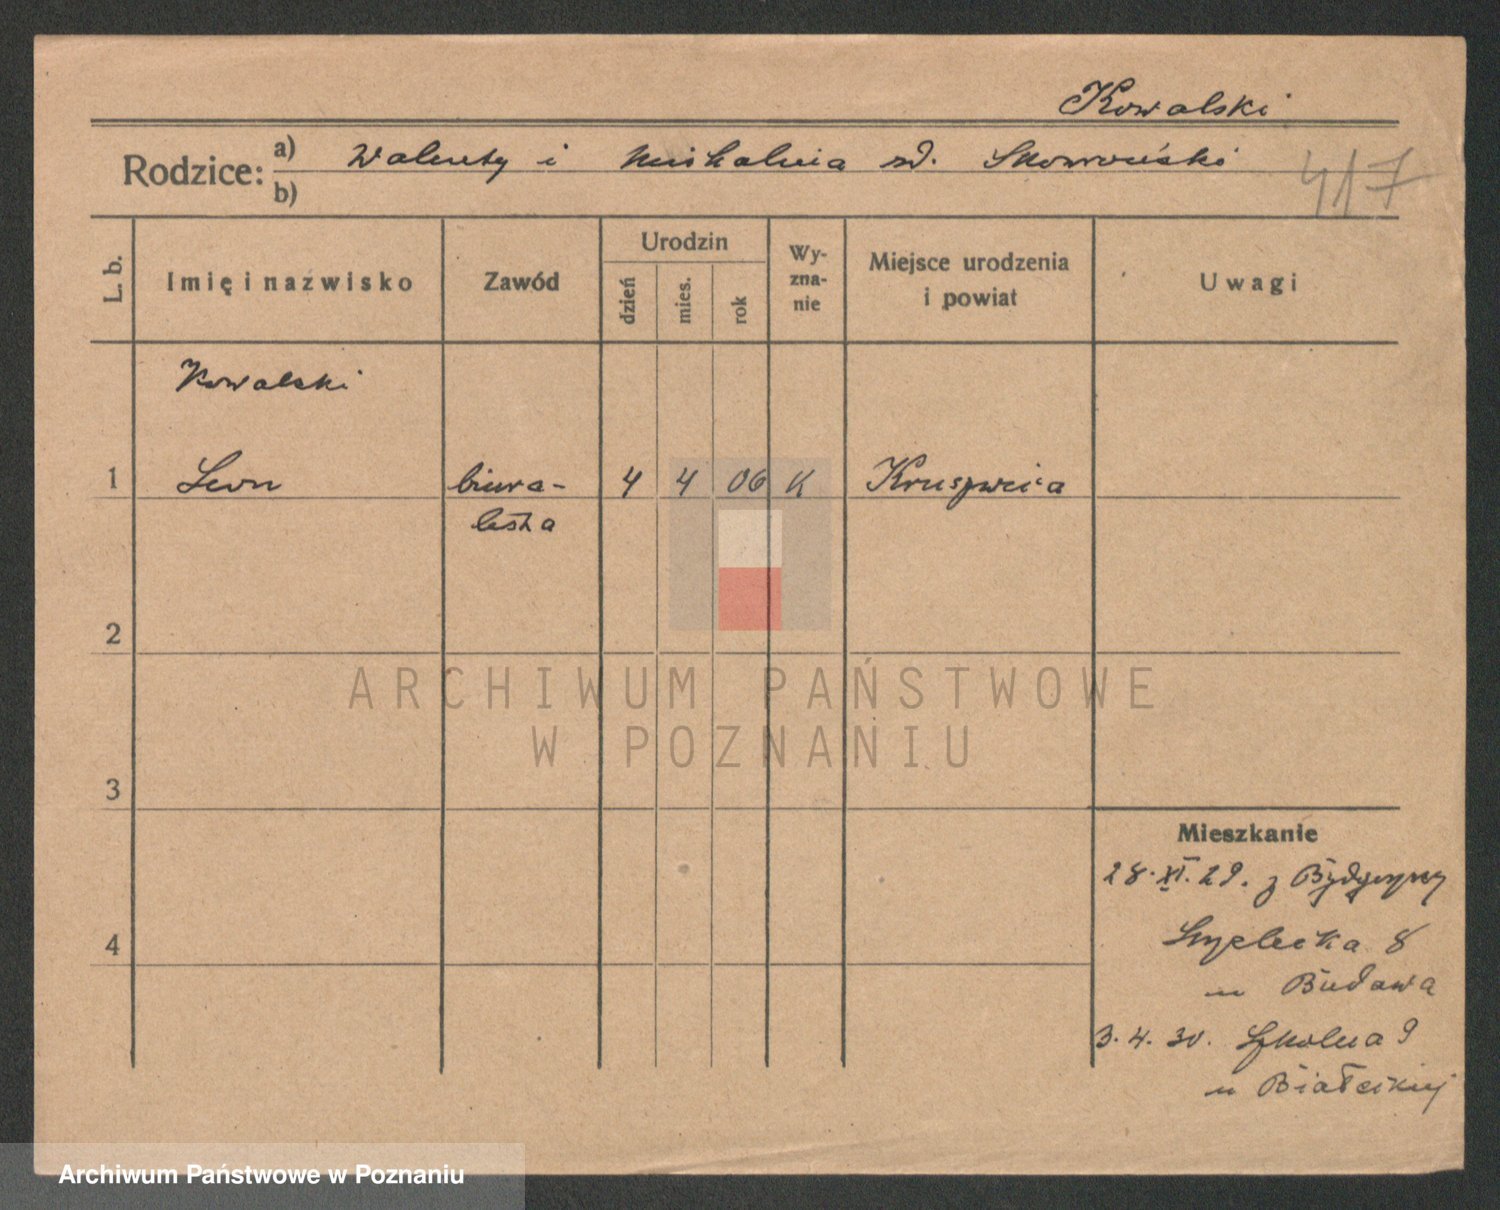 Kowalski
Rodzice: a) Walenty i Michalina zd. Skowroński
b)
417
L. b.
Imię i nazwisko
Zawód
Urodzin
dzień
mies.
rok
Wy-
zna-
nie
Miejsce urodzenia
i powiat
Uwagi
Kowalski
1 Leon biura- 4 4 06 K Kruszwica
lista
2
ARCHIWUM PAŃSTWOWE
W POZNANIU
3
Mieszkanie
28.XI.29. z Bydgoszczy
4
8
u
3.4.30. Szkolna 9
u Białeckiej
Archiwum Państwowe w Poznaniu